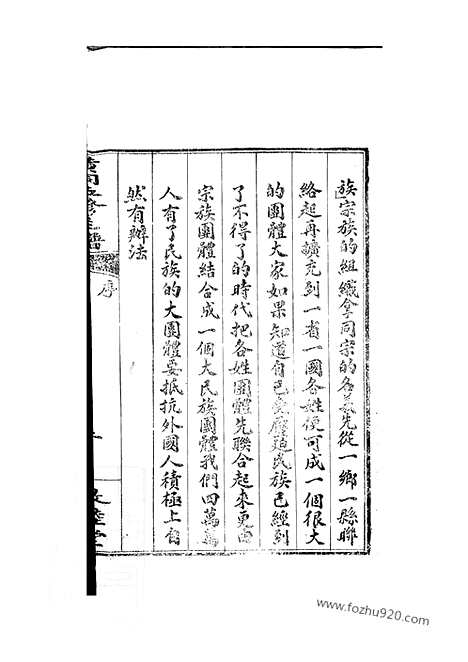 族宗族的組織拿同宗的名義先從一鄉一縣聯
絡起再擴充到一省一國各姓便可成一個很大
的團體大家如果知道自己受壓迫民族已經到
了不得了的時代把各姓團體先聯合起來更由
宗族團體結合成一個大民族團體我們四萬萬
人有了民族的大團體要抵抗外國人積極上自
然有辦法
序
www.fozhu920.com